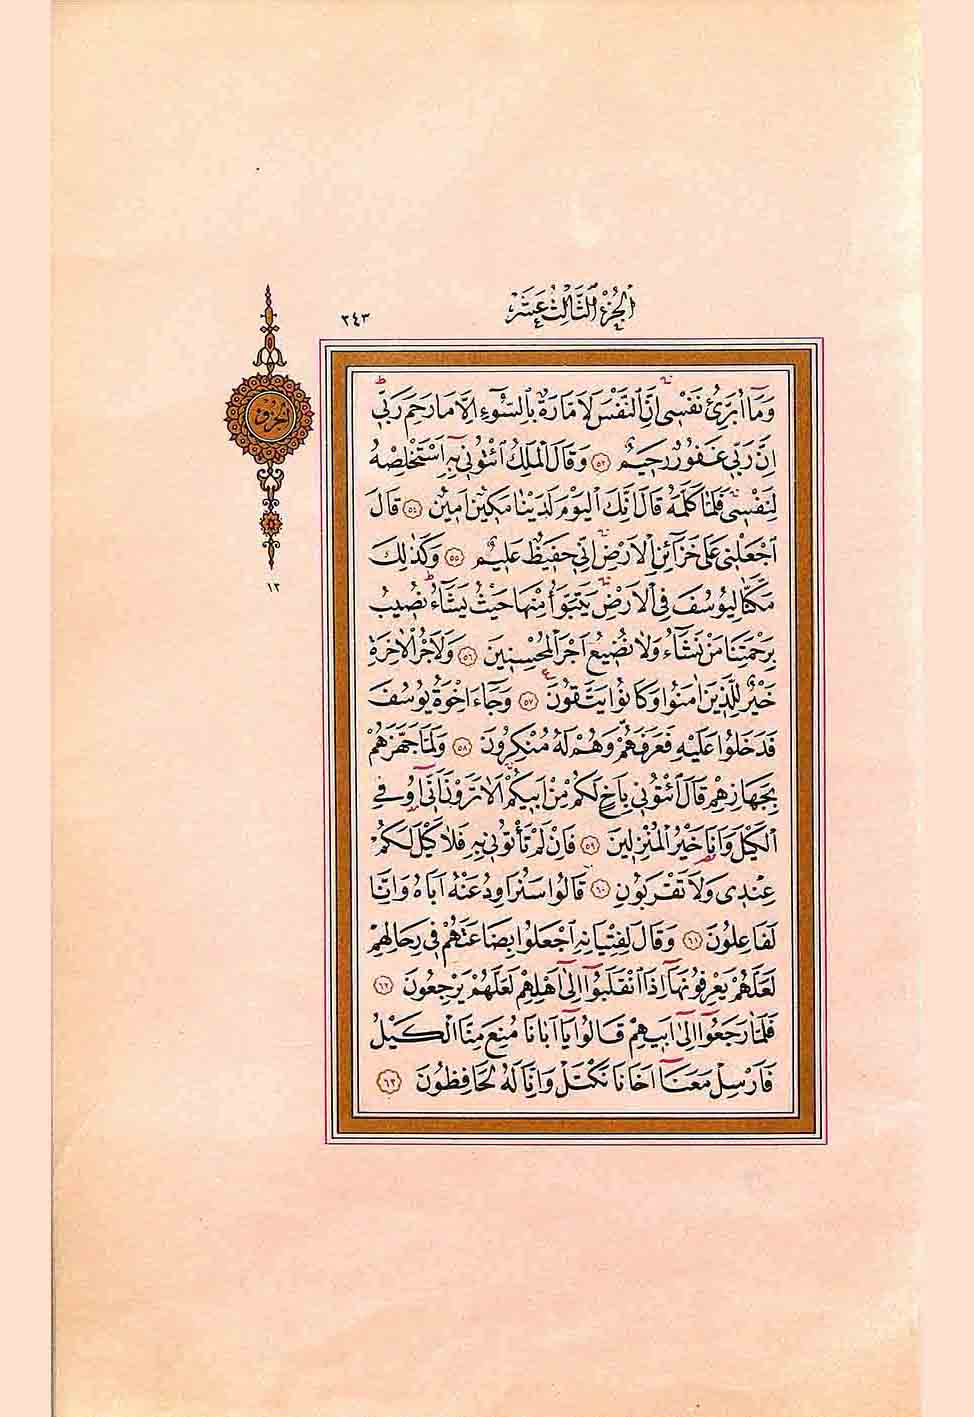 الجزء الثالث عشر
٢٤٣
الجزء
١٣
وَمَٓا اُبَرِّئُ نَفْسٖيۚ اِنَّ النَّفْسَ لَاَمَّارَةٌ بِالسُّٓوءِ اِلَّا مَا رَحِمَ رَبّٖيۜ
اِنَّ رَبّٖي غَفُورٌ رَحٖيمٌ ﴿٥٣﴾ وَقَالَ الْمَلِكُ ائْتُونٖي بِهٖٓ اَسْتَخْلِصْهُ
لِنَفْسٖيۚ فَلَمَّا كَلَّمَهُ قَالَ اِنَّكَ الْيَوْمَ لَدَيْنَا مَكٖينٌ اَمٖينٌ ﴿٥٤﴾ قَالَ
اجْعَلْنٖي عَلٰى خَزَٓائِنِ الْاَرْضِۚ اِنّٖي حَفٖيظٌ عَلٖيمٌ ﴿٥٥﴾ وَكَذٰلِكَ
مَكَّنَّا لِيُوسُفَ فِي الْاَرْضِۚ يَتَبَوَّاُ مِنْهَا حَيْثُ يَشَٓاءُۜ نُصٖيبُ
بِرَحْمَتِنَا مَنْ نَشَٓاءُ وَلَا نُضٖيعُ اَجْرَ الْمُحْسِنٖينَ ﴿٥٦﴾ وَلَاَجْرُ الْاٰخِرَةِ
خَيْرٌ لِلَّذٖينَ اٰمَنُوا وَكَانُوا يَتَّقُونَ ﴿٥٧﴾ وَجَٓاءَ اِخْوَةُ يُوسُفَ
فَدَخَلُوا عَلَيْهِ فَعَرَفَهُمْ وَهُمْ لَهُ مُنْكِرُونَ ﴿٥٨﴾ وَلَمَّا جَهَّزَهُمْ
بِجَهَازِهِمْ قَالَ ائْتُونٖي بِاَخٍ لَكُمْ مِنْ اَبٖيكُمْۚ اَلَا تَرَوْنَ اَنّٖٓي اُوفِي
الْكَيْلَ وَاَنَا خَيْرُ الْمُنْزِلٖينَ ﴿٥٩﴾ فَاِنْ لَمْ تَأْتُونٖي بِهٖ فَلَا كَيْلَ لَكُمْ
عِنْدٖي وَلَا تَقْرَبُونِ ﴿٦٠﴾ قَالُوا سَنُرَاوِدُ عَنْهُ اَبَاهُ وَاِنَّا
لَفَاعِلُونَ ﴿٦١﴾ وَقَالَ لِفِتْيَانِهِ اجْعَلُوا بِضَاعَتَهُمْ فٖي رِحَالِهِمْ
لَعَلَّهُمْ يَعْرِفُونَهَٓا اِذَا انْقَلَبُٓوا اِلٰٓى اَهْلِهِمْ لَعَلَّهُمْ يَرْجِعُونَ ﴿٦٢﴾
فَلَمَّا رَجَعُٓوا اِلٰٓى اَبٖيهِمْ قَالُوا يَٓا اَبَانَا مُنِعَ مِنَّا الْكَيْلُ
فَاَرْسِلْ مَعَنَٓا اَخَانَا نَكْتَلْ وَاِنَّا لَهُ لَحَافِظُونَ ﴿٦٣﴾